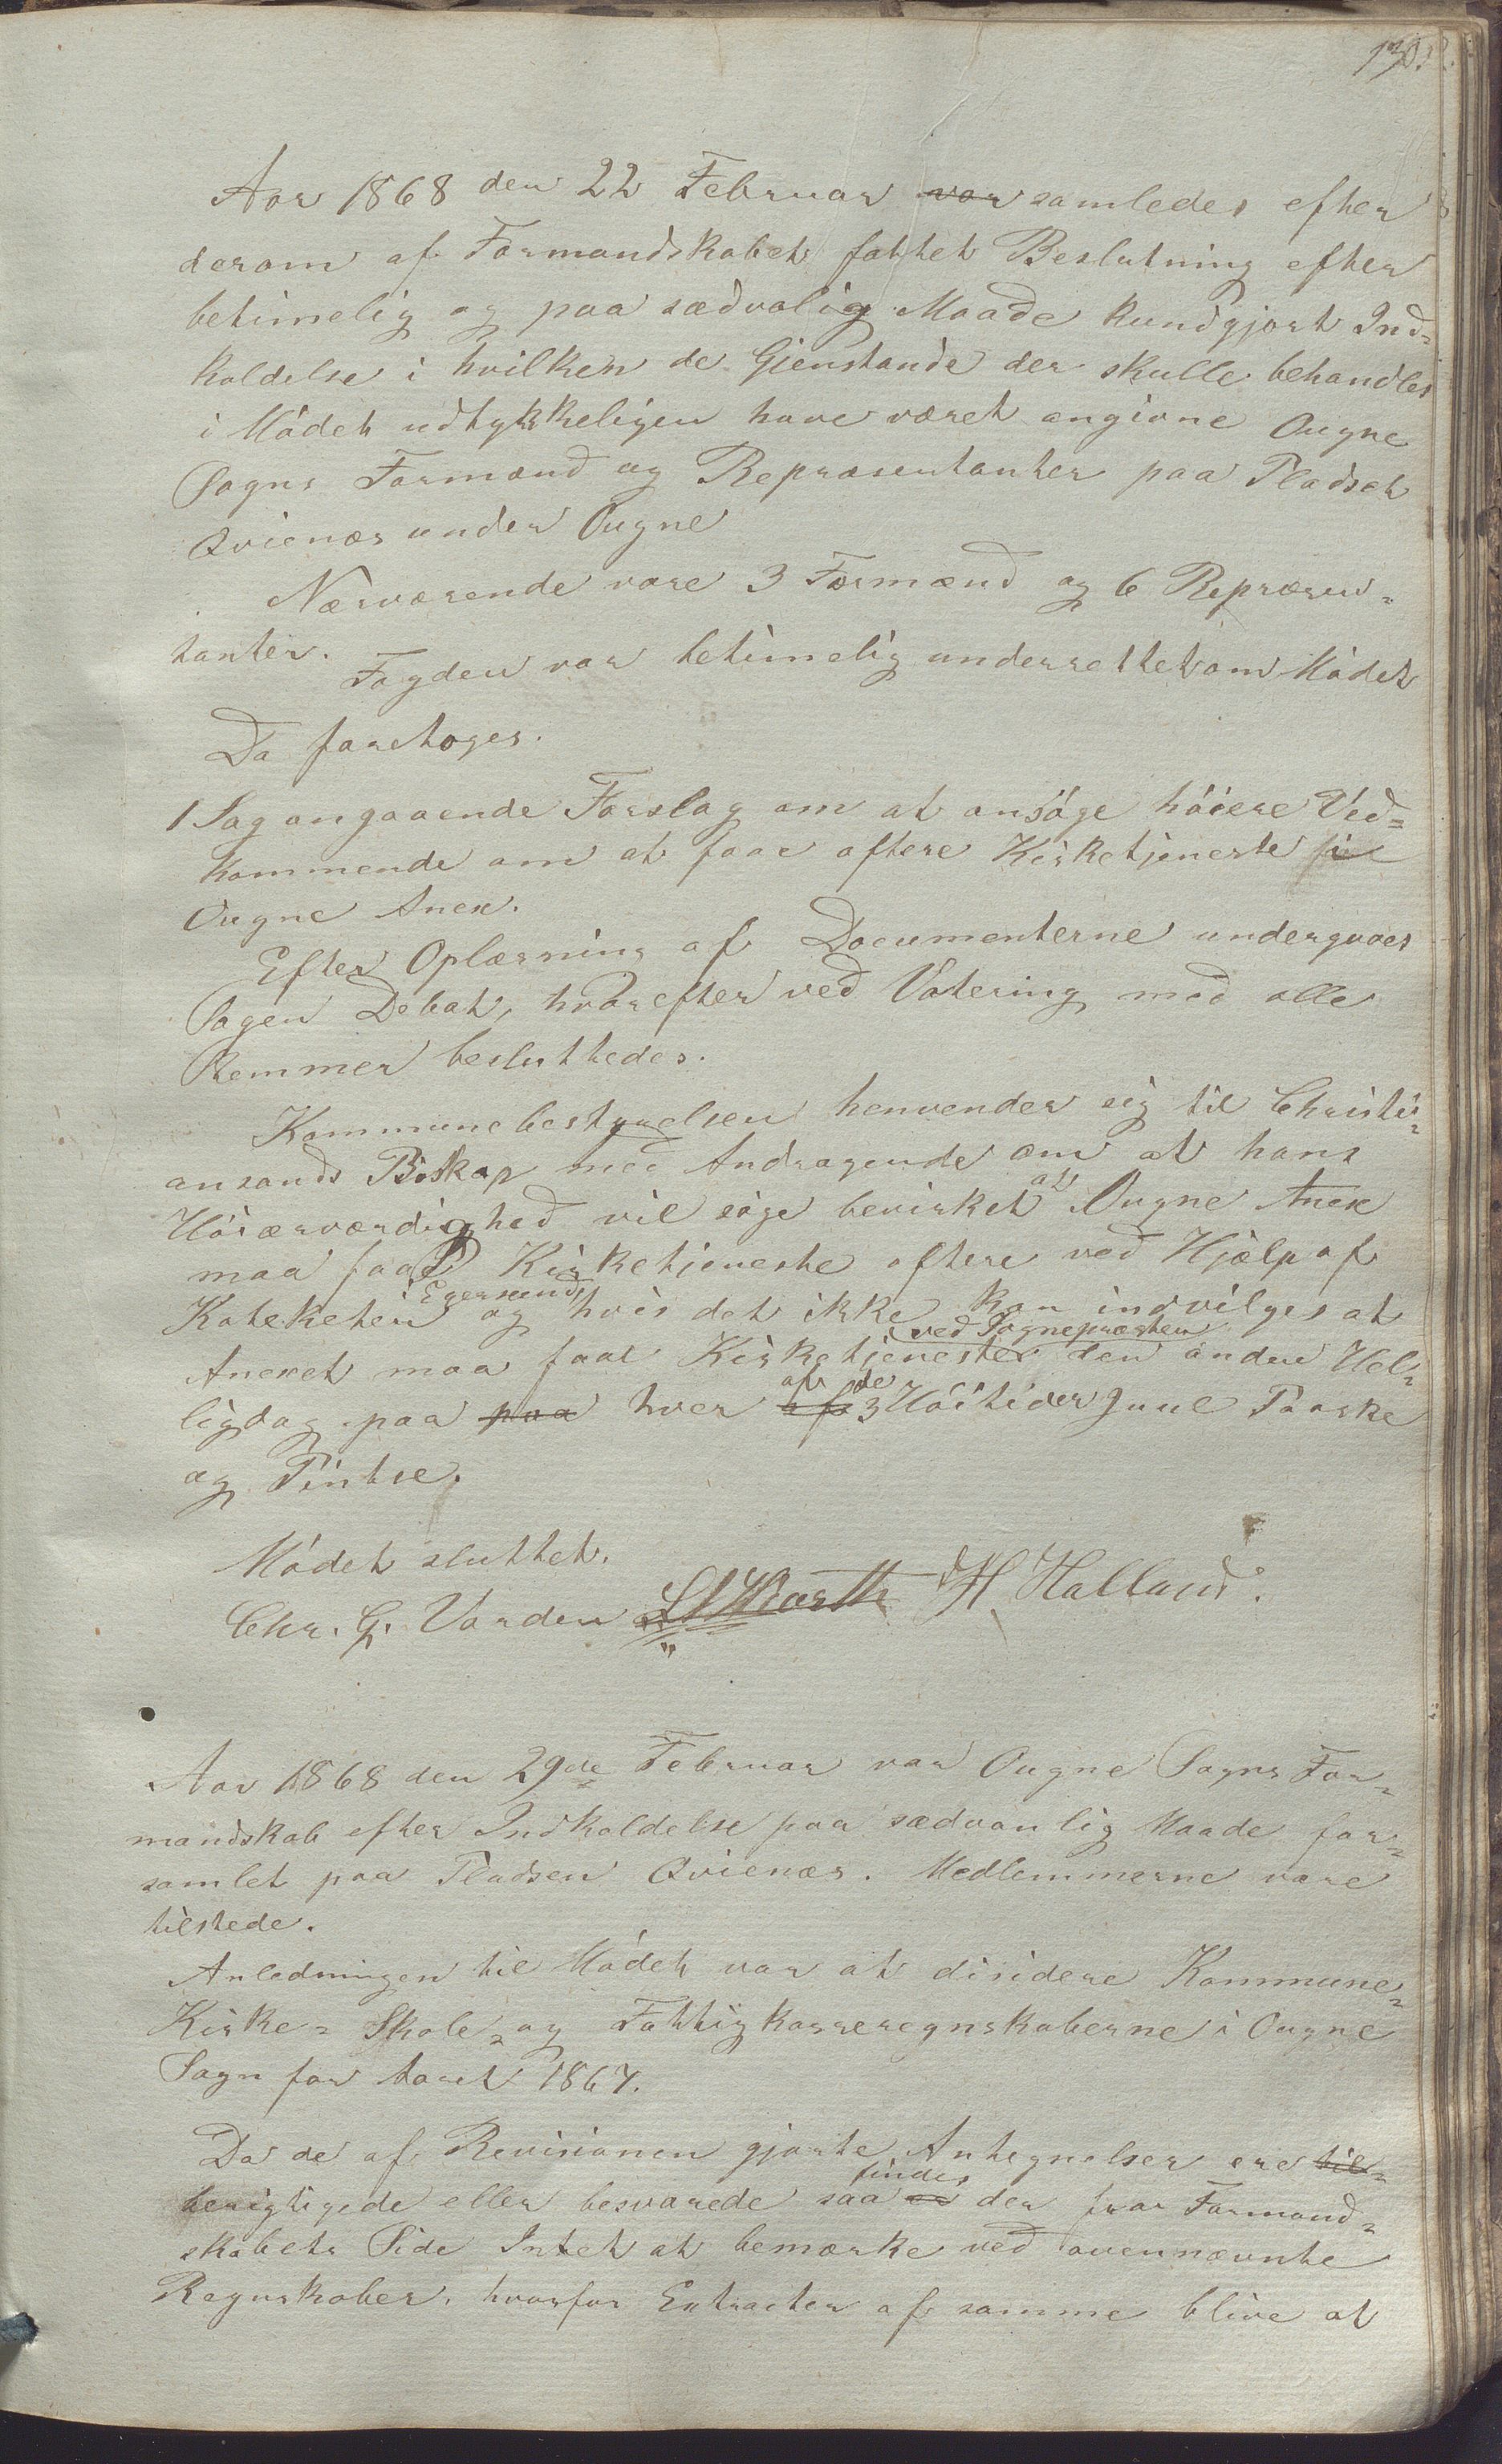 130.
Aar 1868 den 22 Februar var samledes efter
derom af Formandskabet fattet Beslutning efter
betimelig og paa sædvalig Maade kundgjort Ind-
kaldelse i hvilken de Gjenstande der skulle behandles
i Mødet udtykkeligen have været angivne Ougne
Sogns Formænd og Repræsentanter paa Pladset
Qvienæs under Ougne
Nærværende vare 3 Formænd og 6 Repræsen-
tanter.
Fogden var betimelig underrettet om Mødet
Da foretoges.
1 Sag angaaende Forslag om at ansøge høiere Ved-
kommende om at faae oftere Kirketjeneste i
Ougne Anex.
Efter Oplæsning af Documenterne undergaves
Sagen Debat, hvorefter ved Votering med alle
Stemmer besluttedes.
Kommunebestyrelsen henvender sig til Christi-
ansands Biskop med Andragende om at hans
Høiærværdighed vil søge bevirket at Ougne Anex
maa faae Kirketjeneste oftere ved Hjælp af
Kateketen i Egersund og hvis det ikke kan indvilges at
Anexet maa faae Kirketjenester ved Sognepræsten den anden Hel-
ligdag paa paa hver af af de 3 Høitider Juul Paaske
og Pintse.
Mødet sluttet.
Chr. G. Varden H Halland.
Aar 1868 den 29de Februar var Ougne Sogns For-
mandskab efter Indkaldelse paa sædvanlig Maade for-
samlet paa Pladsen Qvienæs. Medlemmerne vare
tilstede.
Anledningen til Mødet var at disidere Kommune-
Kirke- Skole- og Fattigkasseregnskaberne i Ougne
Sogn for Aaret 1867.
Da de af Revisionen gjorte Antegnelser ere til-
berigtigede eller besvarede saa er findes der fra Formand-
skabets Side Intet at bemærke ved ovennævnte
Regnskaber, hvorfor Extracter af samme blive at